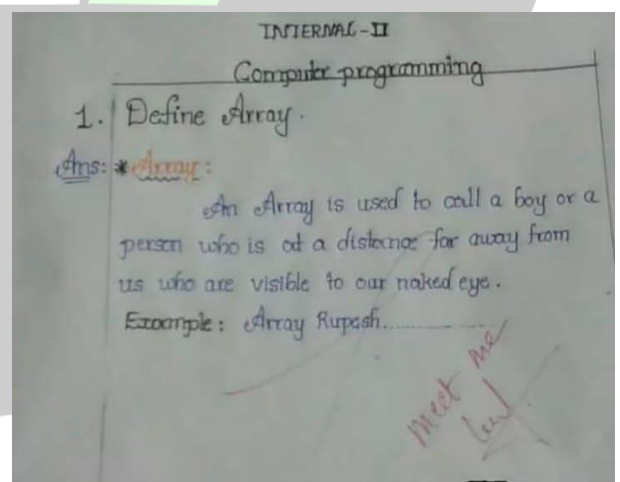 INTERNAL-II
Computer programming
1. Define Array.
Ans: * Array:
An Array is used to call a boy or a
person who is at a distance far away from
us who are visible to our naked eye.
Example: Array Rupesh..............
meet me